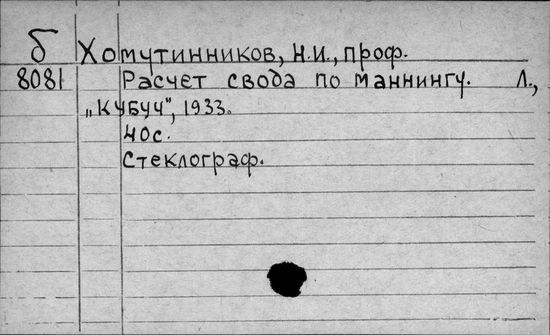 б Хомутинников, Н.И., проф.
8081 Расчет свода по Маннингу. Л.,
„Кубуч", 1933.
40с.
Стеклограф.